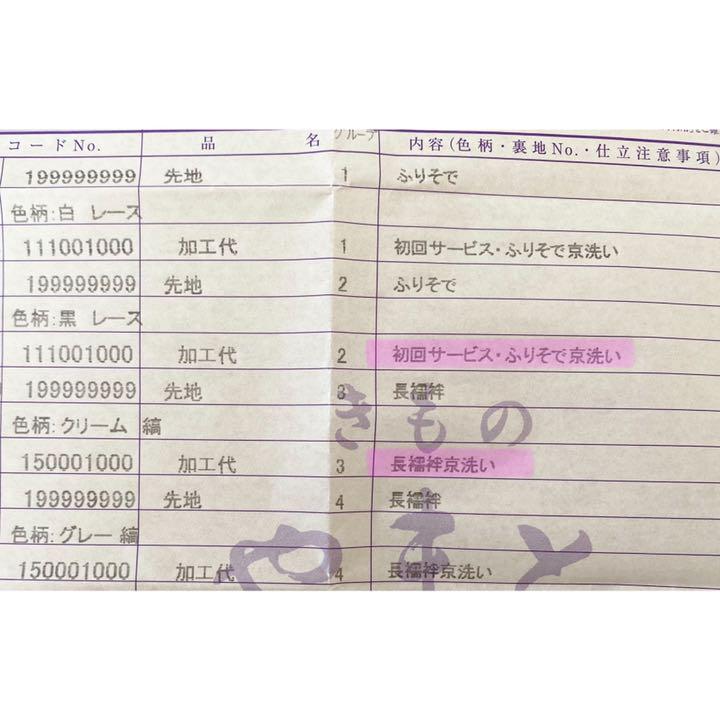 コードNo. 品名 グループ 内容(色柄・裏地No.・仕立注意事項)
199999999 先地 1 ふりそで
色柄:白 レース
111001000 加工代 1 初回サービス・ふりそで京洗い
199999999 先地 2 ふりそで
色柄:黒 レース
111001000 加工代 2 初回サービス・ふりそで京洗い
199999999 先地 3 長襦袢
きもの
色柄:クリーム 縞
150001000 加工代 3 長襦袢京洗い
199999999 先地 4 長襦袢
色柄:グレー 縞
やまと
150001000 加工代 4 長襦袢京洗い